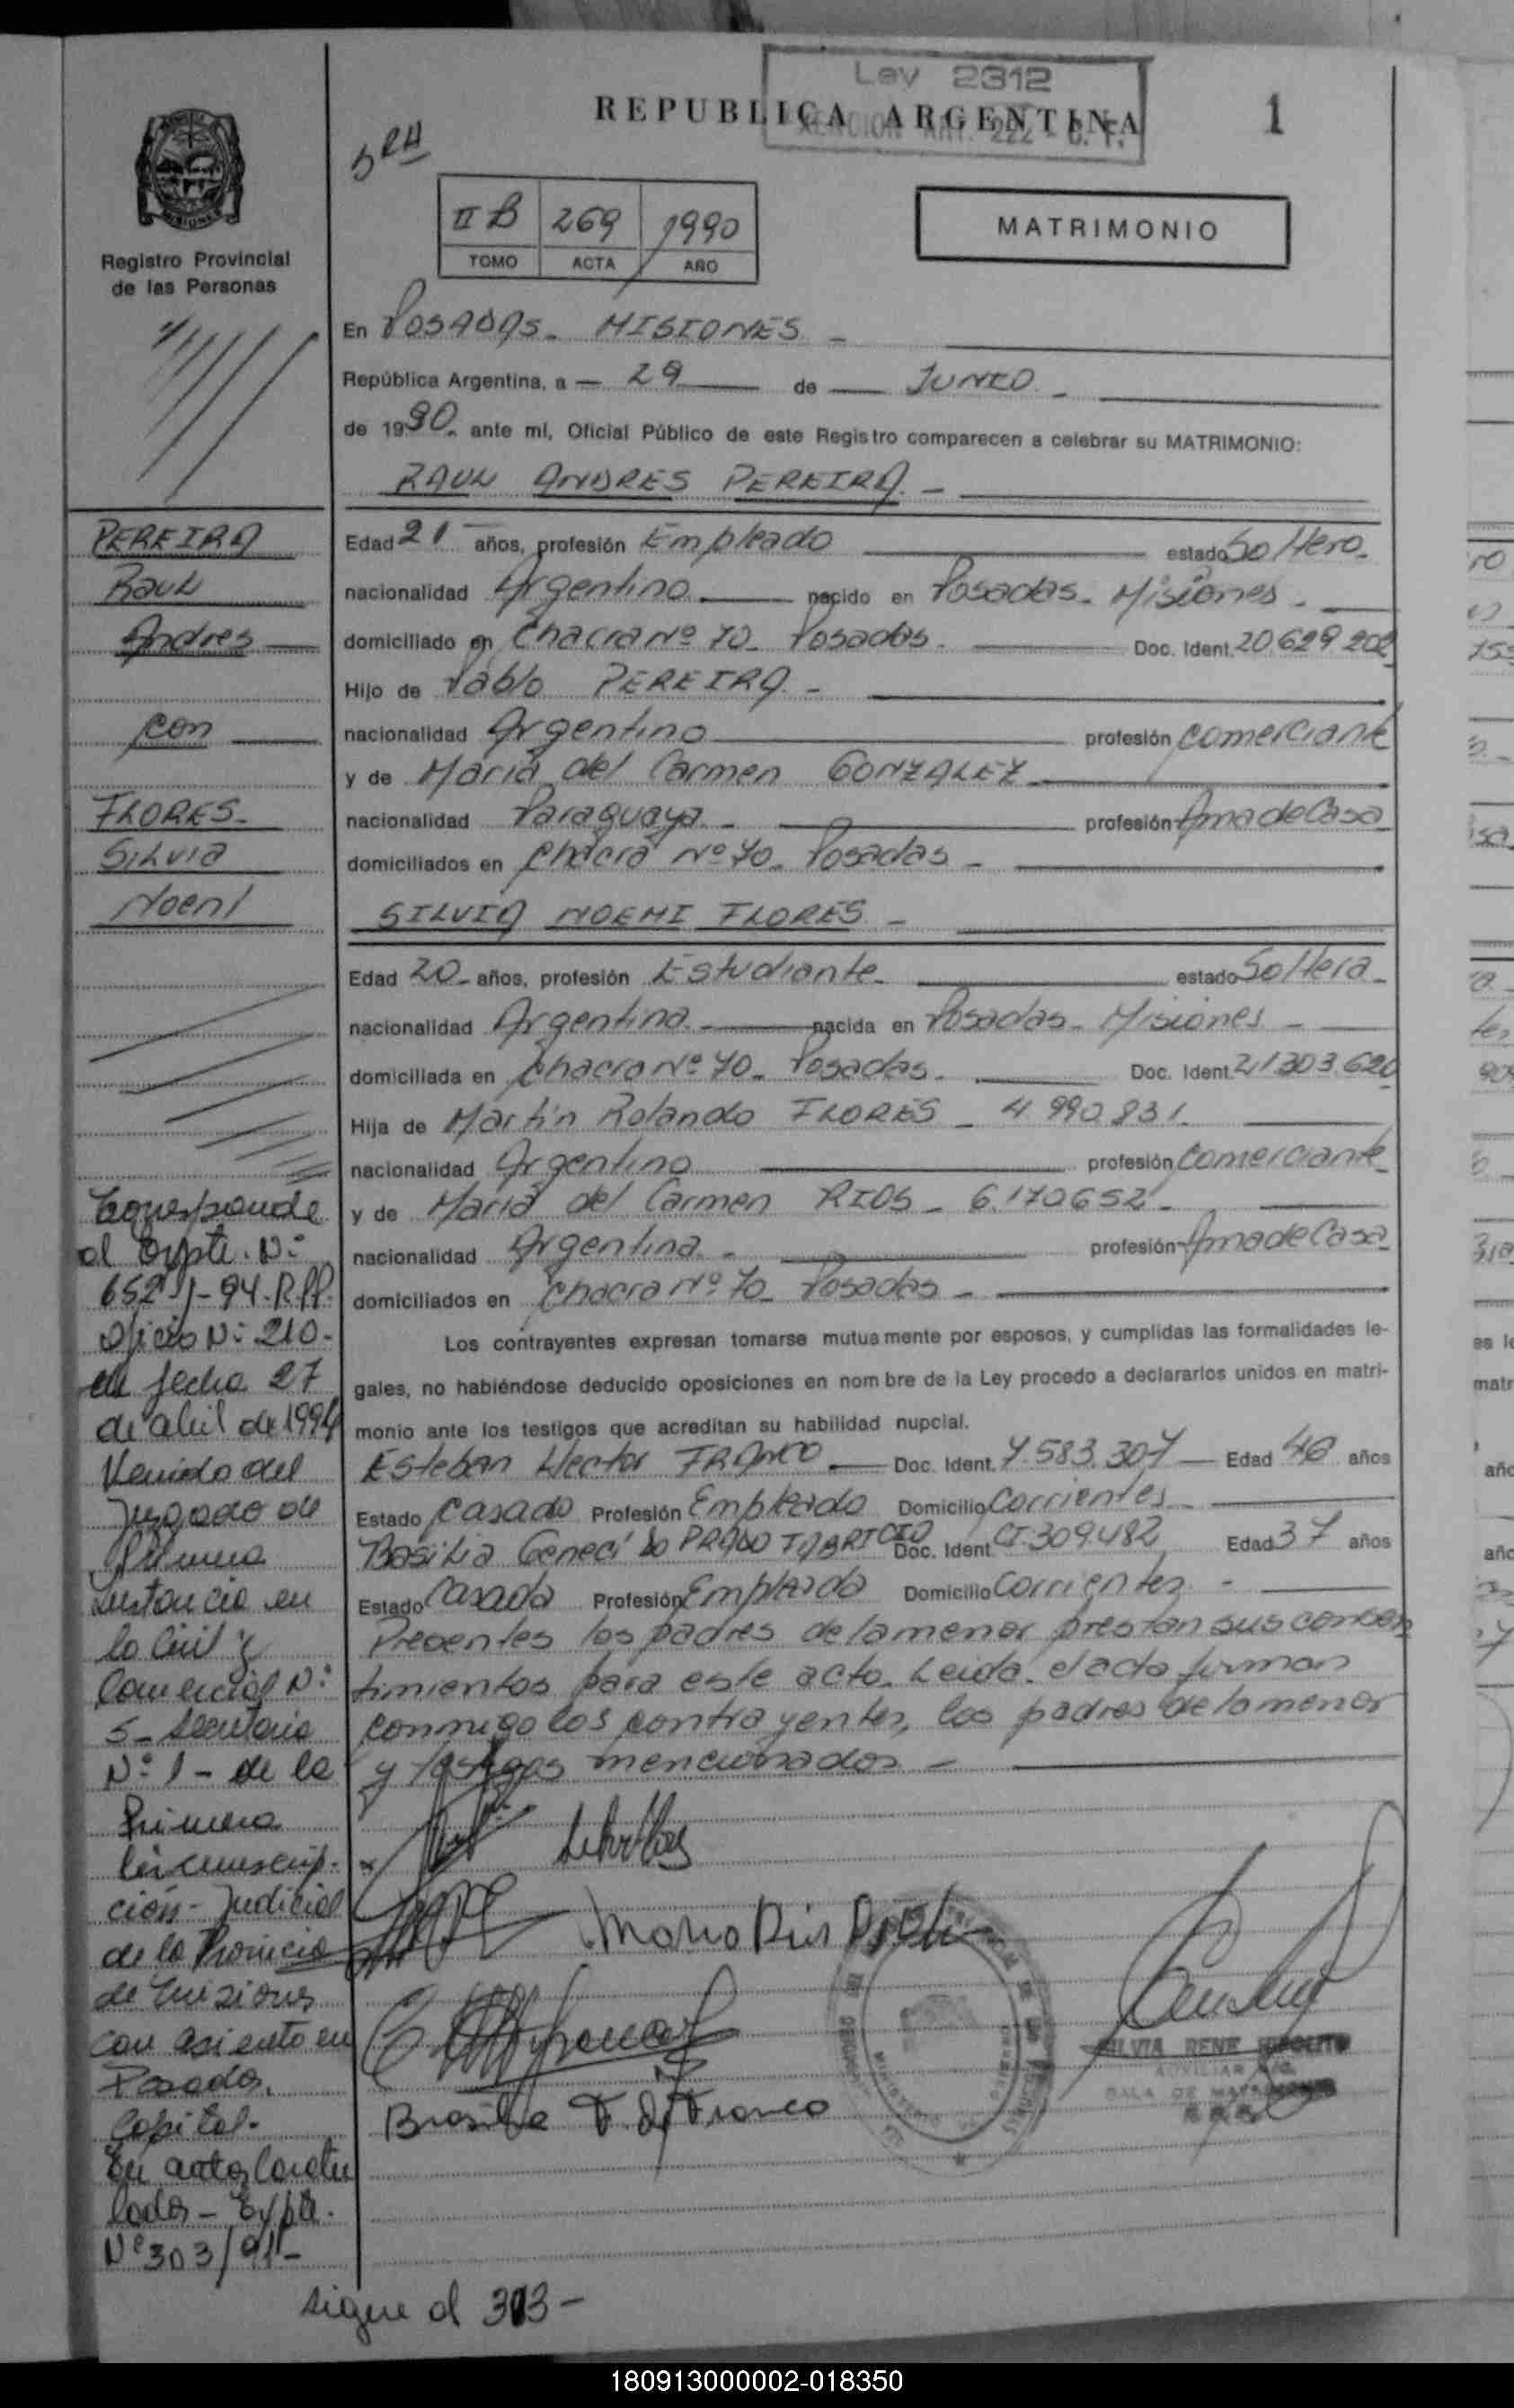 Ley 2312
REPUBLICA ARGENTINA
1
II B 269 1990
TOMO ACTA AÑO
MATRIMONIO
Registro Provincial
de las Personas
En POSADAS - MISIONES -
República Argentina, a — 29 — de — JUNIO -
de 1990. ante mí, Oficial Público de este Registro comparecen a celebrar su MATRIMONIO:
RAUL ANDRES PEREIRA. -
PEREIRA
RAUL
Andres
con
FLORES-
SILVIA
Noemí
Edad 21 años, profesión Empleado estado Soltero.
nacionalidad Argentino nacido en Posadas - Misiones.
domiciliado en Chacra Nº 70 - Posadas. Doc. Ident. 20.629.202
Hijo de Pablo PEREIRA -
nacionalidad Argentino profesión comerciante
y de María del Carmen GONZALEZ
nacionalidad Paraguaya - profesión Ama de Casa
domiciliados en Chacra Nº 70 - Posadas -
SILVIA NOEMI FLORES -
Edad 20 - años, profesión Estudiante - estado Soltera -
nacionalidad Argentina nacida en Posadas - Misiones -
domiciliada en Chacra Nº 70 - Posadas. Doc. Ident. 21.303.620
Hija de Martín Rolando FLORES - 4.990.831.
nacionalidad Argentino profesión comerciante
y de María del Carmen RIOS - 6.170652 -
nacionalidad Argentina - profesión Ama de Casa
domiciliados en Chacra Nº 70 - Posadas -
Los contrayentes expresan tomarse mutuamente por esposos, y cumplidas las formalidades le-
gales, no habiéndose deducido oposiciones en nombre de la Ley procedo a declararlos unidos en matri-
monio ante los testigos que acreditan su habilidad nupcial.
Esteban Hector FRANCO Doc. Ident. 7.583.307 Edad 40 años
Estado Casado Profesión Empleado Domicilio Corrientes
Basilia PRADO Doc. Ident. CI.309.482 Edad 37 años
Estado Casada Profesión Empleada Domicilio Corrientes -
Presentes los padres de la menor prestan sus consen
timientos para este acto. Leida el acta firman
conmigo los contrayentes, los padres de la menor
y testigos mencionados -
Corresponde
al Expte. Nº
652 -94-R.PP.
Oficio Nº 210-
de fecha 27
de abril de 1994
Venido del
Juzgado de
Primera
Instancia en
lo Civil y
Comercial Nº
5- Secretaria
Nº 1 - de la
Primera
Circunscrip-
ción - Judicial
de la Provincia
de Misiones
con asiento en
Posadas,
Capital-
En autos Caratu
lados - Expte.
Nº 303/91-
SILVIA RENE HIPOLITO
AUXILIAR
SALA DE MATRIMONIO
sigue al 313 -
180913000002-018350